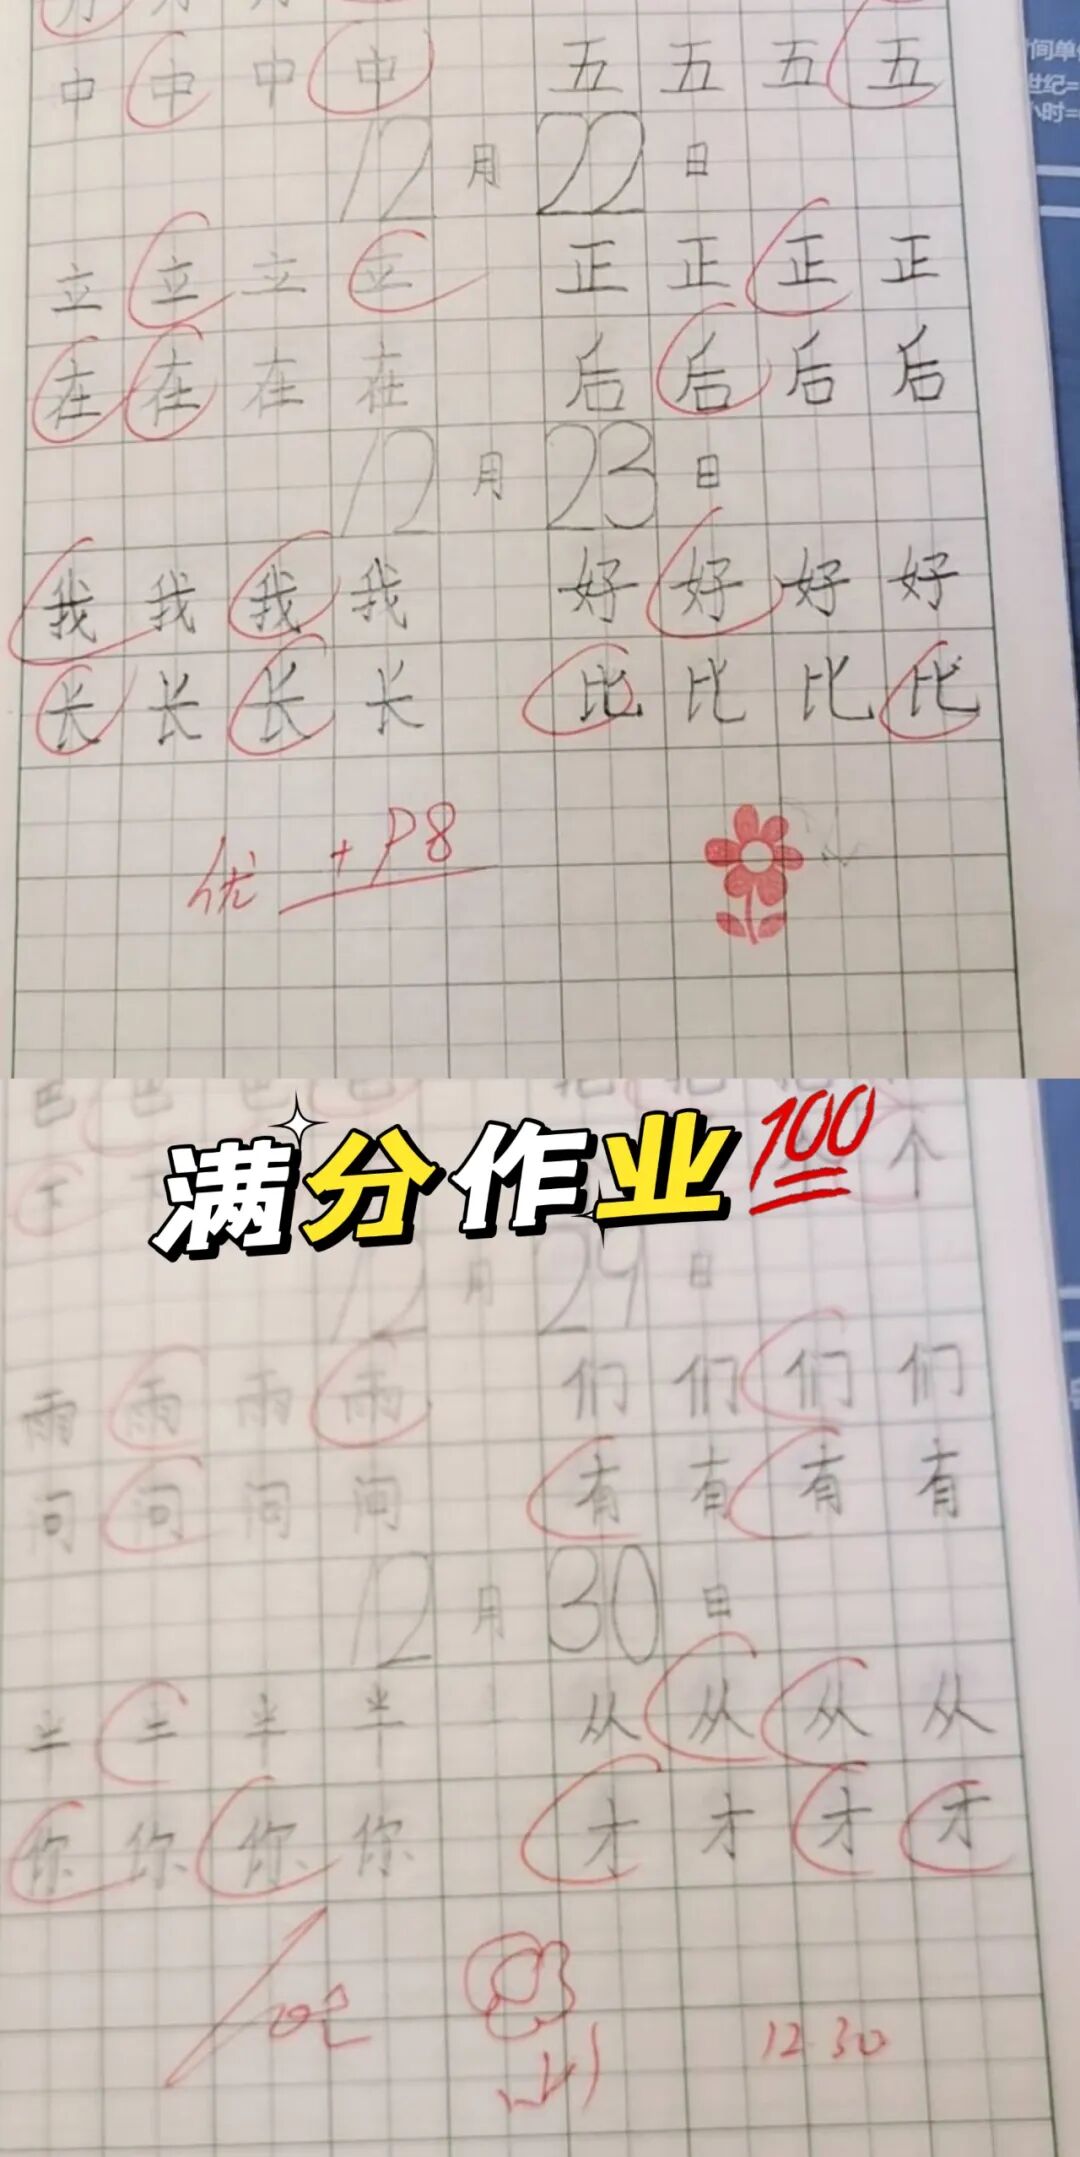 中 中 中 中 五 五 五 五
间单
世纪=
小时=
12月22日
立 立 立 立 正 正 正 正
在 在 在 在 后 后 后 后
12月23日
我 我 我 我 好 好 好 好
长 长 长 长 比 比 比 比
优 +P8
满分作业💯
个
12月29日
雨 雨 雨 雨 们 们 们 们
问 问 问 问 有 有 有 有
12月30日
半 半 半 半 从 从 从 从
你 你 你 你 才 才 才 才
12.30